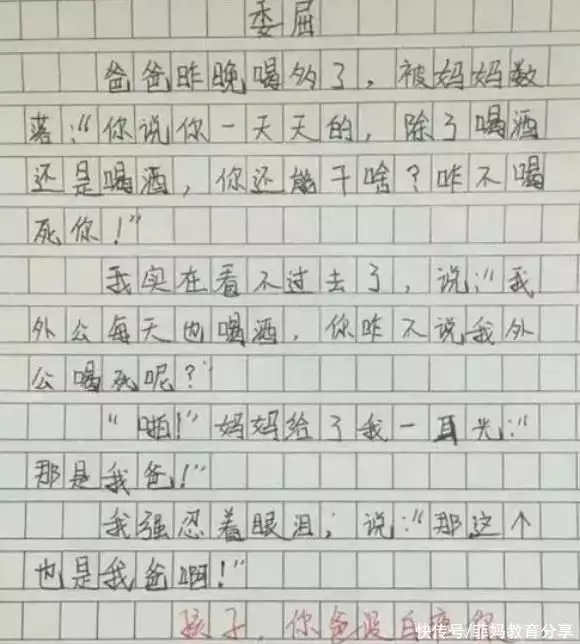 委屈
爸爸昨晚喝多了，被妈妈数
落：“你说你一天天的，除了喝酒
还是喝酒，你还能干啥？咋不喝
死你！”
我实在看不过去了，说：“我
外公每天也喝酒，你咋不说我外
公喝死呢？”
“啪！”妈妈给了我一耳光：“
那是我爸！”
我强忍着眼泪；说：“那这个
也是我爸啊！”
孩子，你爸没白疼你
快传号/菲妈教育分享